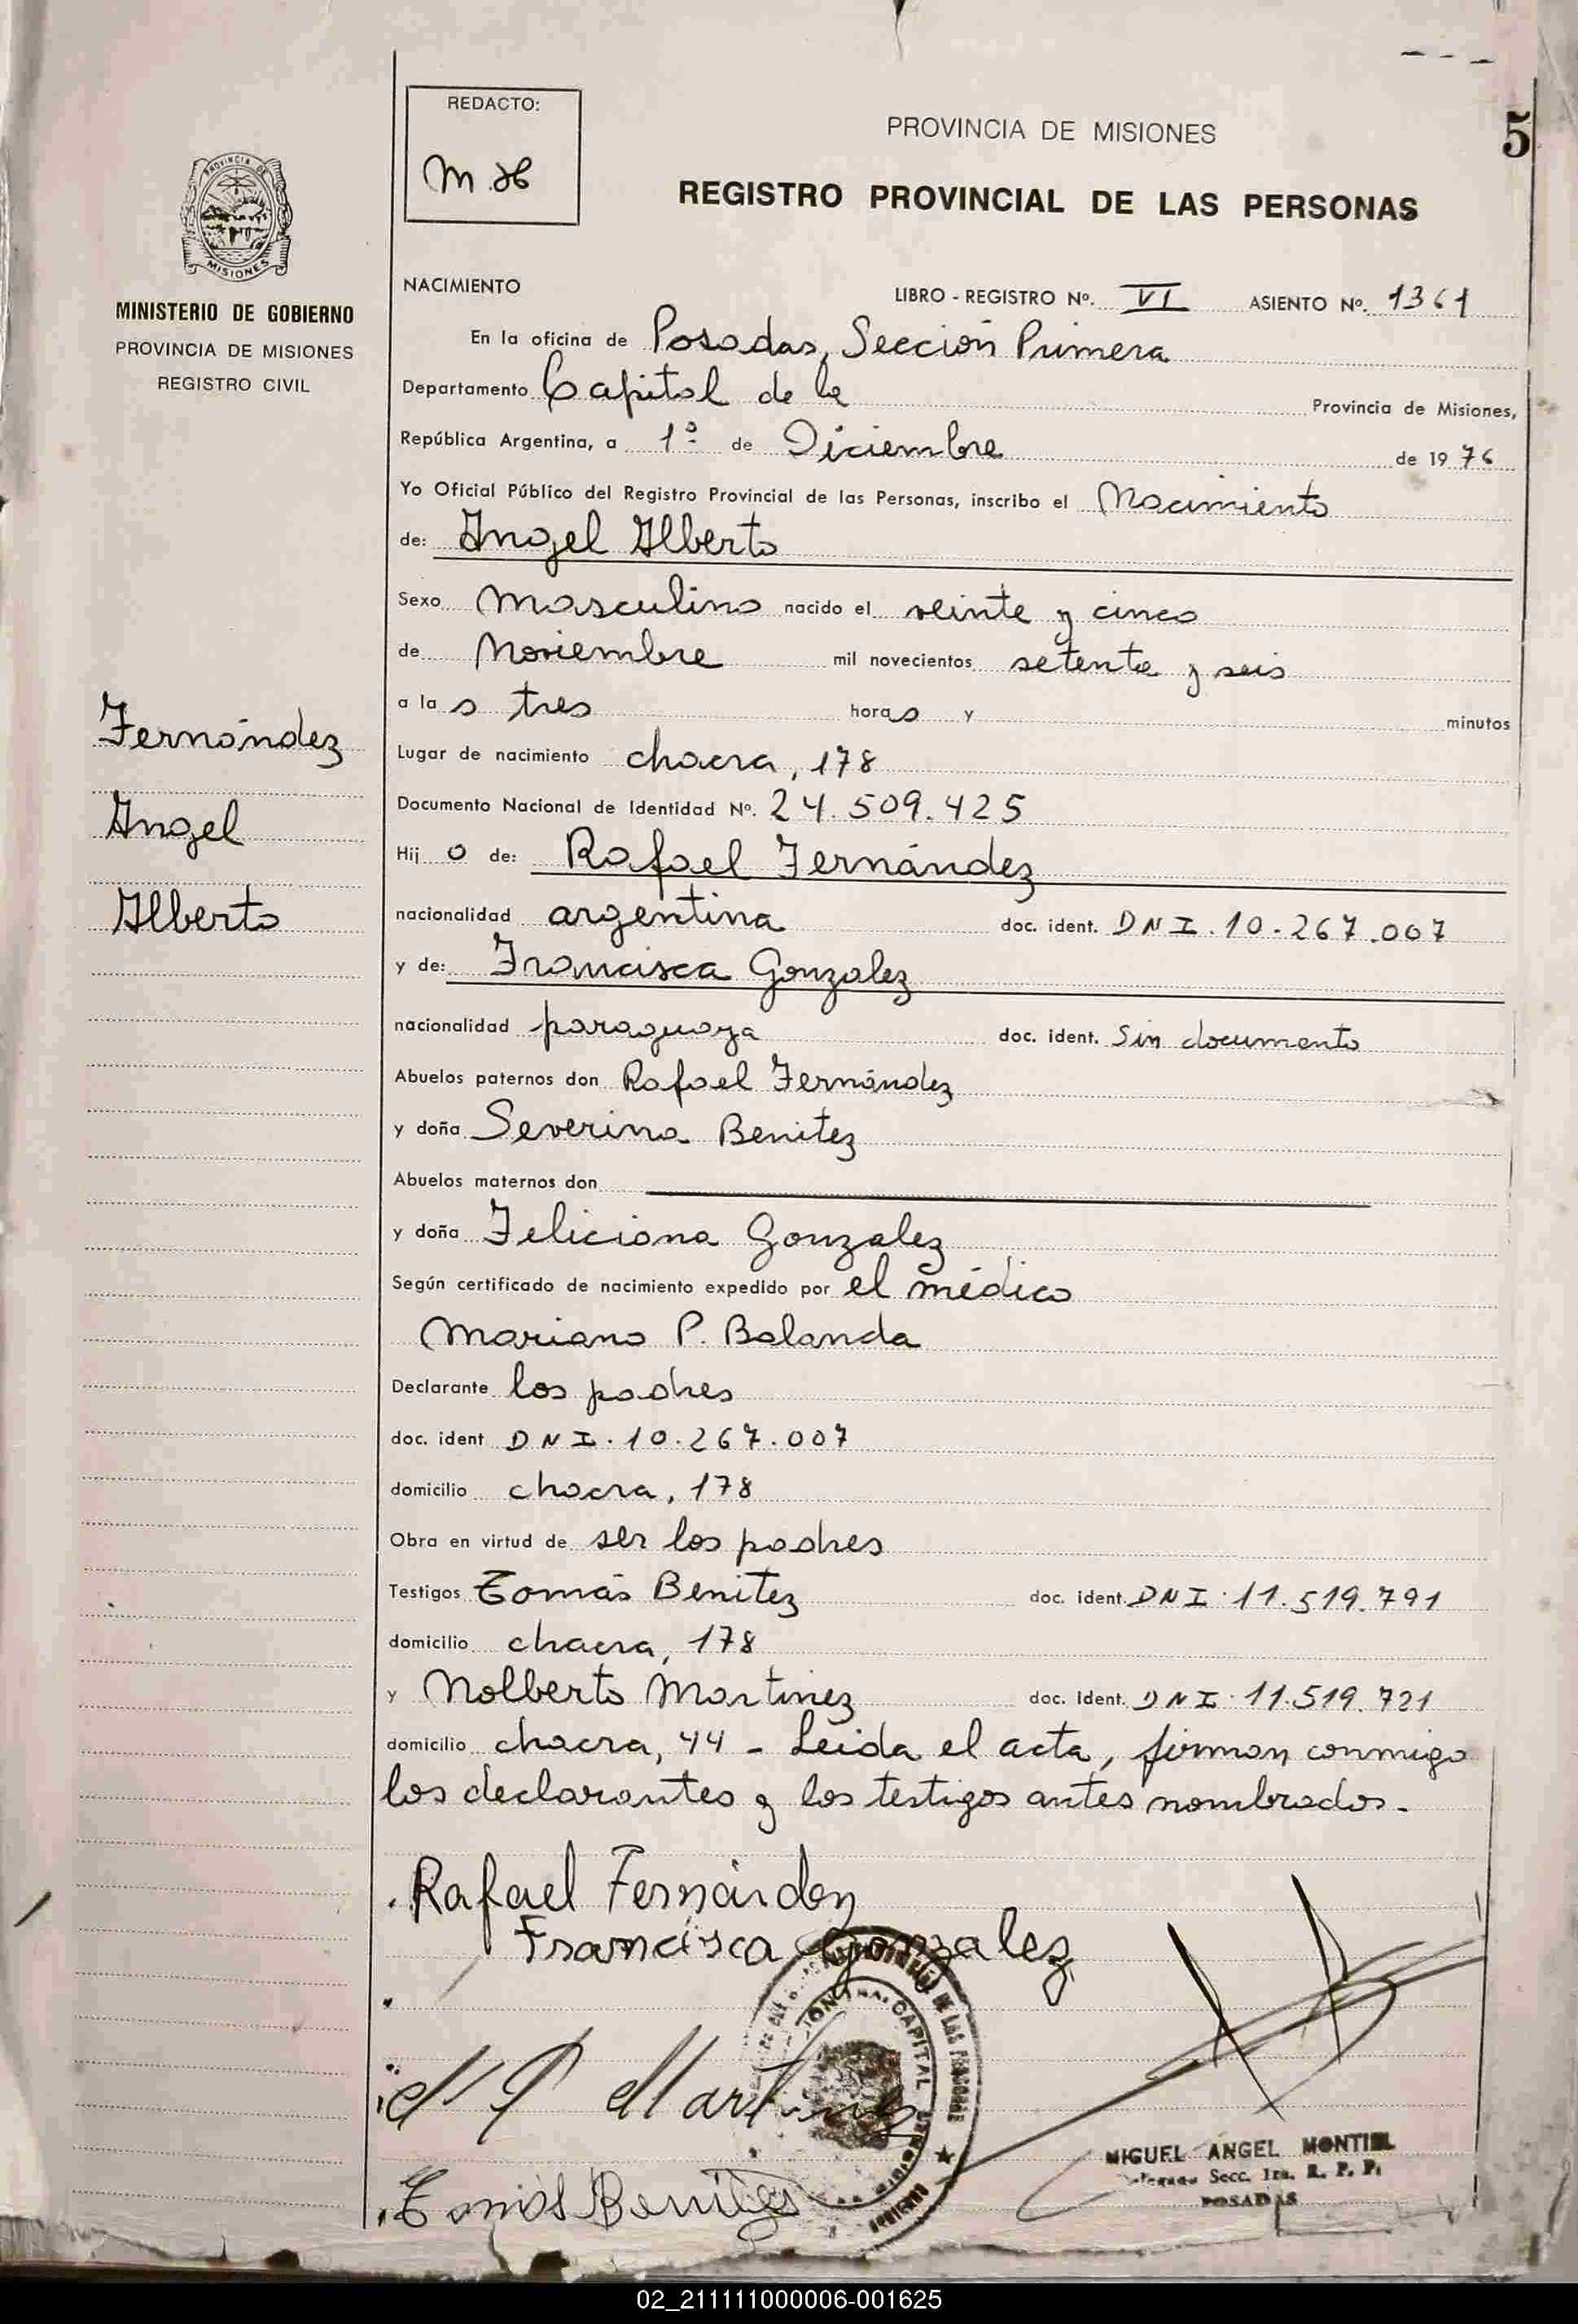 REDACTO:
PROVINCIA DE MISIONES
5
REGISTRO PROVINCIAL DE LAS PERSONAS
PROVINCIA DE
MISIONES
MINISTERIO DE GOBIERNO
PROVINCIA DE MISIONES
REGISTRO CIVIL
NACIMIENTO
LIBRO - REGISTRO Nº. VI ASIENTO Nº. 1361
En la oficina de Posadas, Sección Primera
Departamento Capital de la Provincia de Misiones,
República Argentina, a 1º de Diciembre de 1976
Yo Oficial Público del Registro Provincial de las Personas, inscribo el Nacimiento
de: Angel Alberto
Sexo masculino nacido el veinte y cinco
de Noviembre mil novecientos setenta y seis
a las tres horas y minutos
Fernández
Lugar de nacimiento chacra, 178
Documento Nacional de Identidad Nº. 24.509.425
Angel
Hijo de: Rafael Fernández
Alberto
nacionalidad argentina doc. ident. DNI. 10.267.007
y de: Francisca Gonzalez
nacionalidad paraguaya doc. ident. Sin documento
Abuelos paternos don Rafael Fernández
y doña Severina Benitez
Abuelos maternos don
y doña Feliciana Gonzalez
Según certificado de nacimiento expedido por el médico
Mariano P. Balanda
Declarante los padres
doc. ident DNI. 10.267.007
domicilio chacra, 178
Obra en virtud de ser los padres
Testigos Tomás Benitez doc. ident. DNI. 11.519.791
domicilio chacra, 178
y Nolberto Martinez doc. ident. DNI. 11.519.721
domicilio chacra, 44 - Leida el acta, firman conmigo
los declarantes y los testigos antes nombrados.
Rafael Fernández
Francisca Gonzalez
DE LAS PERSONAS
CAPITAL
Martinez
MIGUEL ANGEL MONTIEL
Secc. 1ra. R. P. P.
POSADAS
Tomás Benitez
02_211111000006-001625